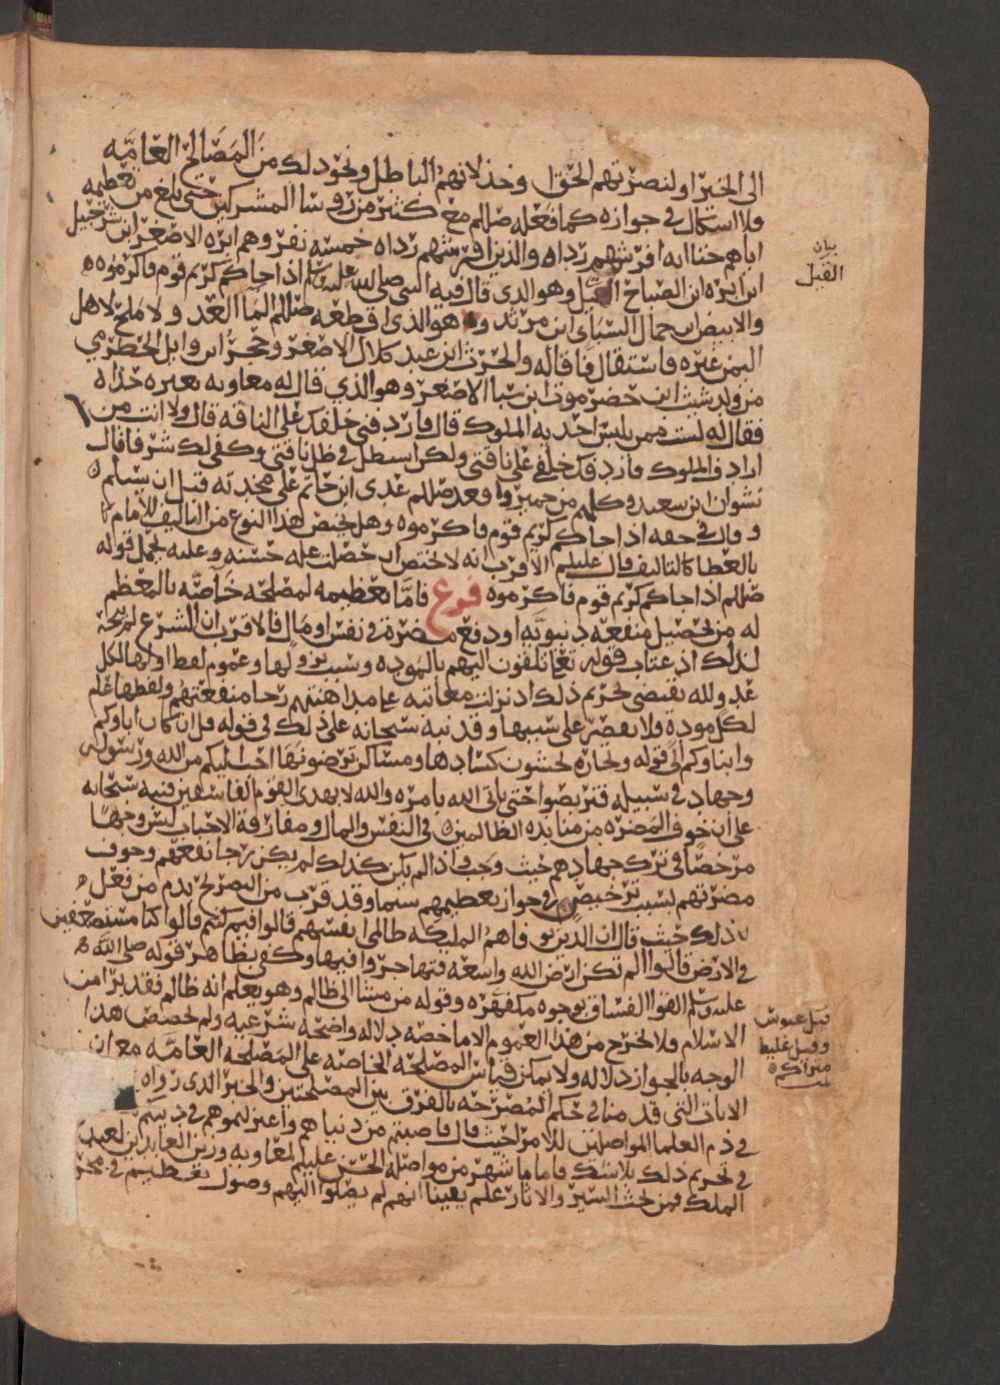 الى الخير او لنصرتهم الحق او خذلانهم الباطل ونحو ذلك من المصالح العامه
ولا اشكال في جوازه كما فعله صللم مع كثير من روسا المشركين حتى بلغ من تعظيمه
اياهم حنا انه افرشهم رداه والذين افرشهم رداه خمسه نفر وهم ابره الاصغر ابن شرحبيل
ابن ابره ابن الصباح القيل وهو الذي قال فيه النبي صلى الله عليه وسلم اذا جاكم كريم قوم فاكرموه
والابيض ابن حمال السباي ابن مرثد وهو الذي اقطعه صللم الما العد ولا ملح لاهل
اليمن غيره فاستقال فاقاله والحرث ابن عبد كلال الاصغر وحجر ابن وايل الحضرمي
من ولد شبت ابن حضرموت ابن سبا الاصغر وهو الذي قال له معاويه بعيره حذاه
فقال له لست ممن يلبس احذيه الملوك قال فاردفني خلفك على الناقه قال ولا انت من
ارداف الملوك ولكن استظل في ظل ناقتي وكفى لك شرفا قال
نشوان ابن سعيد وكلهم من حمير واقعد صللم عدي ابن حاتم على مخدته قبل ان يسلم
وقال في حقه اذا جاكم كريم قوم فاكرموه وهل يختص هذا النوع من التاليف للامام
بالعطا كالتاليف قال عليلم الاقرب انه لا يختص ان حصلت عله حسنه وعليه يحمل قوله
صللم اذا جاكم كريم قوم فاكرموه فرع فاما تعظيمه لمصلحه خاصه بالمعظم
له من تحصيل منفعه دنيويه او دفع مضرة في نفس او مال فالاقرب ان الشرع لم يبحه
لذلك اذ عتاب قوله تعا تلقون اليهم بالموده وسبب نزولها وعموم لفظ اولها لكل
عدو لله يقتضي تحريم ذلك اذ نزلت معاتبه على مداهنتهم رجا منفعتهم ولفظها عام
لكل موده ولا يقصر على سببها وقد نبه سبحانه على ذلك في قوله قل ان كان اباوكم
وابناوكم الى قوله وتجاره تخشون كسادها ومساكن ترضونها احب اليكم من الله ورسوله
وجهاد في سبيله فتربصوا حتى ياتي الله بامره والله لا يهدي القوم الفاسقين فنبه سبحانه
على ان خوف المضره من منابذه الظالمين في النفس والمال ومفارقة الاحباب ليس وجها
مرخصا في ترك جهادهم حيث وجب واذا لم يكن كذلك لم يكن رجا نفعهم وخوف
مضرتهم لسبب ترخيص في جواز تعظيمهم سيما وقد قرب من التصريح بذم من فعل
ذلك حيث قال ان الذين توفاهم المليكه ظالمي انفسهم قالوا فيم كنتم قالوا كنا مستضعفين
في الارض قالوا الم تكن ارض الله واسعه فتهاجروا فيها وكفى بظاهر قوله صلى الله
عليه وسلم القوا الفساق بوجوه مكفهره وقوله من مشا الى ظالم وهو يعلم انه ظالم فقد برا من
الاسلام فلا يخرج من هذا العموم الا ما خصه دلاله واضحه شرعيه ولم تخصص هذا
الوجه بالجواز دلاله ولا يمكن قياس المصلحه الخاصه على المصلحه العامه مع ان
الايات التي قدمنا في حكم المصرحه بالفرق بين المصلحتين والخبر الذي رواه
في ذم العلما المواصلين للامرا حيث قال فاصبتم من دنياهم واعتزلتموهم في دينكم
في تحريم ذلك بلا شك فاما ما شهر من مواصلة الحسن عليلم لمعاويه وزين العابدين لعبد
الملك فمن بحث السير والاثار علم يقينا انهم لم يصلوا اليهم وصول تعظيم في
بيان
القيل
قيل عبوس
وقيل غليظ
متراكم